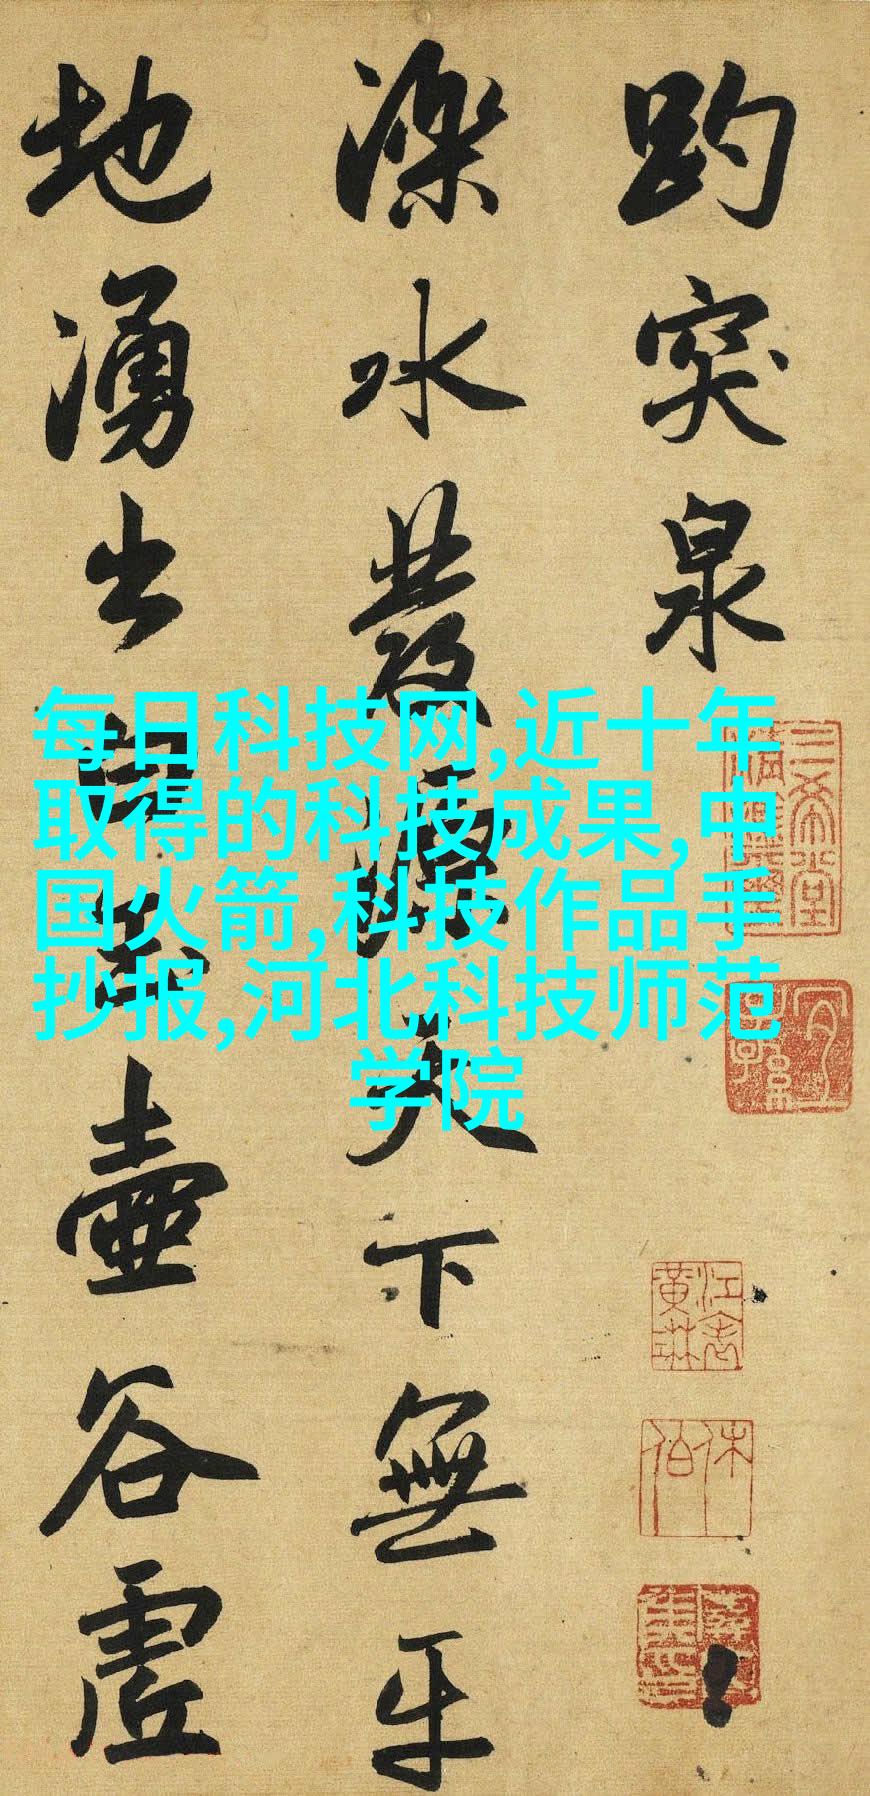 趵突泉
濼水發源天下無
地湧出白玉壺谷虚
每日科技网,近十年
取得的科技成果,中
国火箭,科技作品手
抄报,河北科技师范
学院